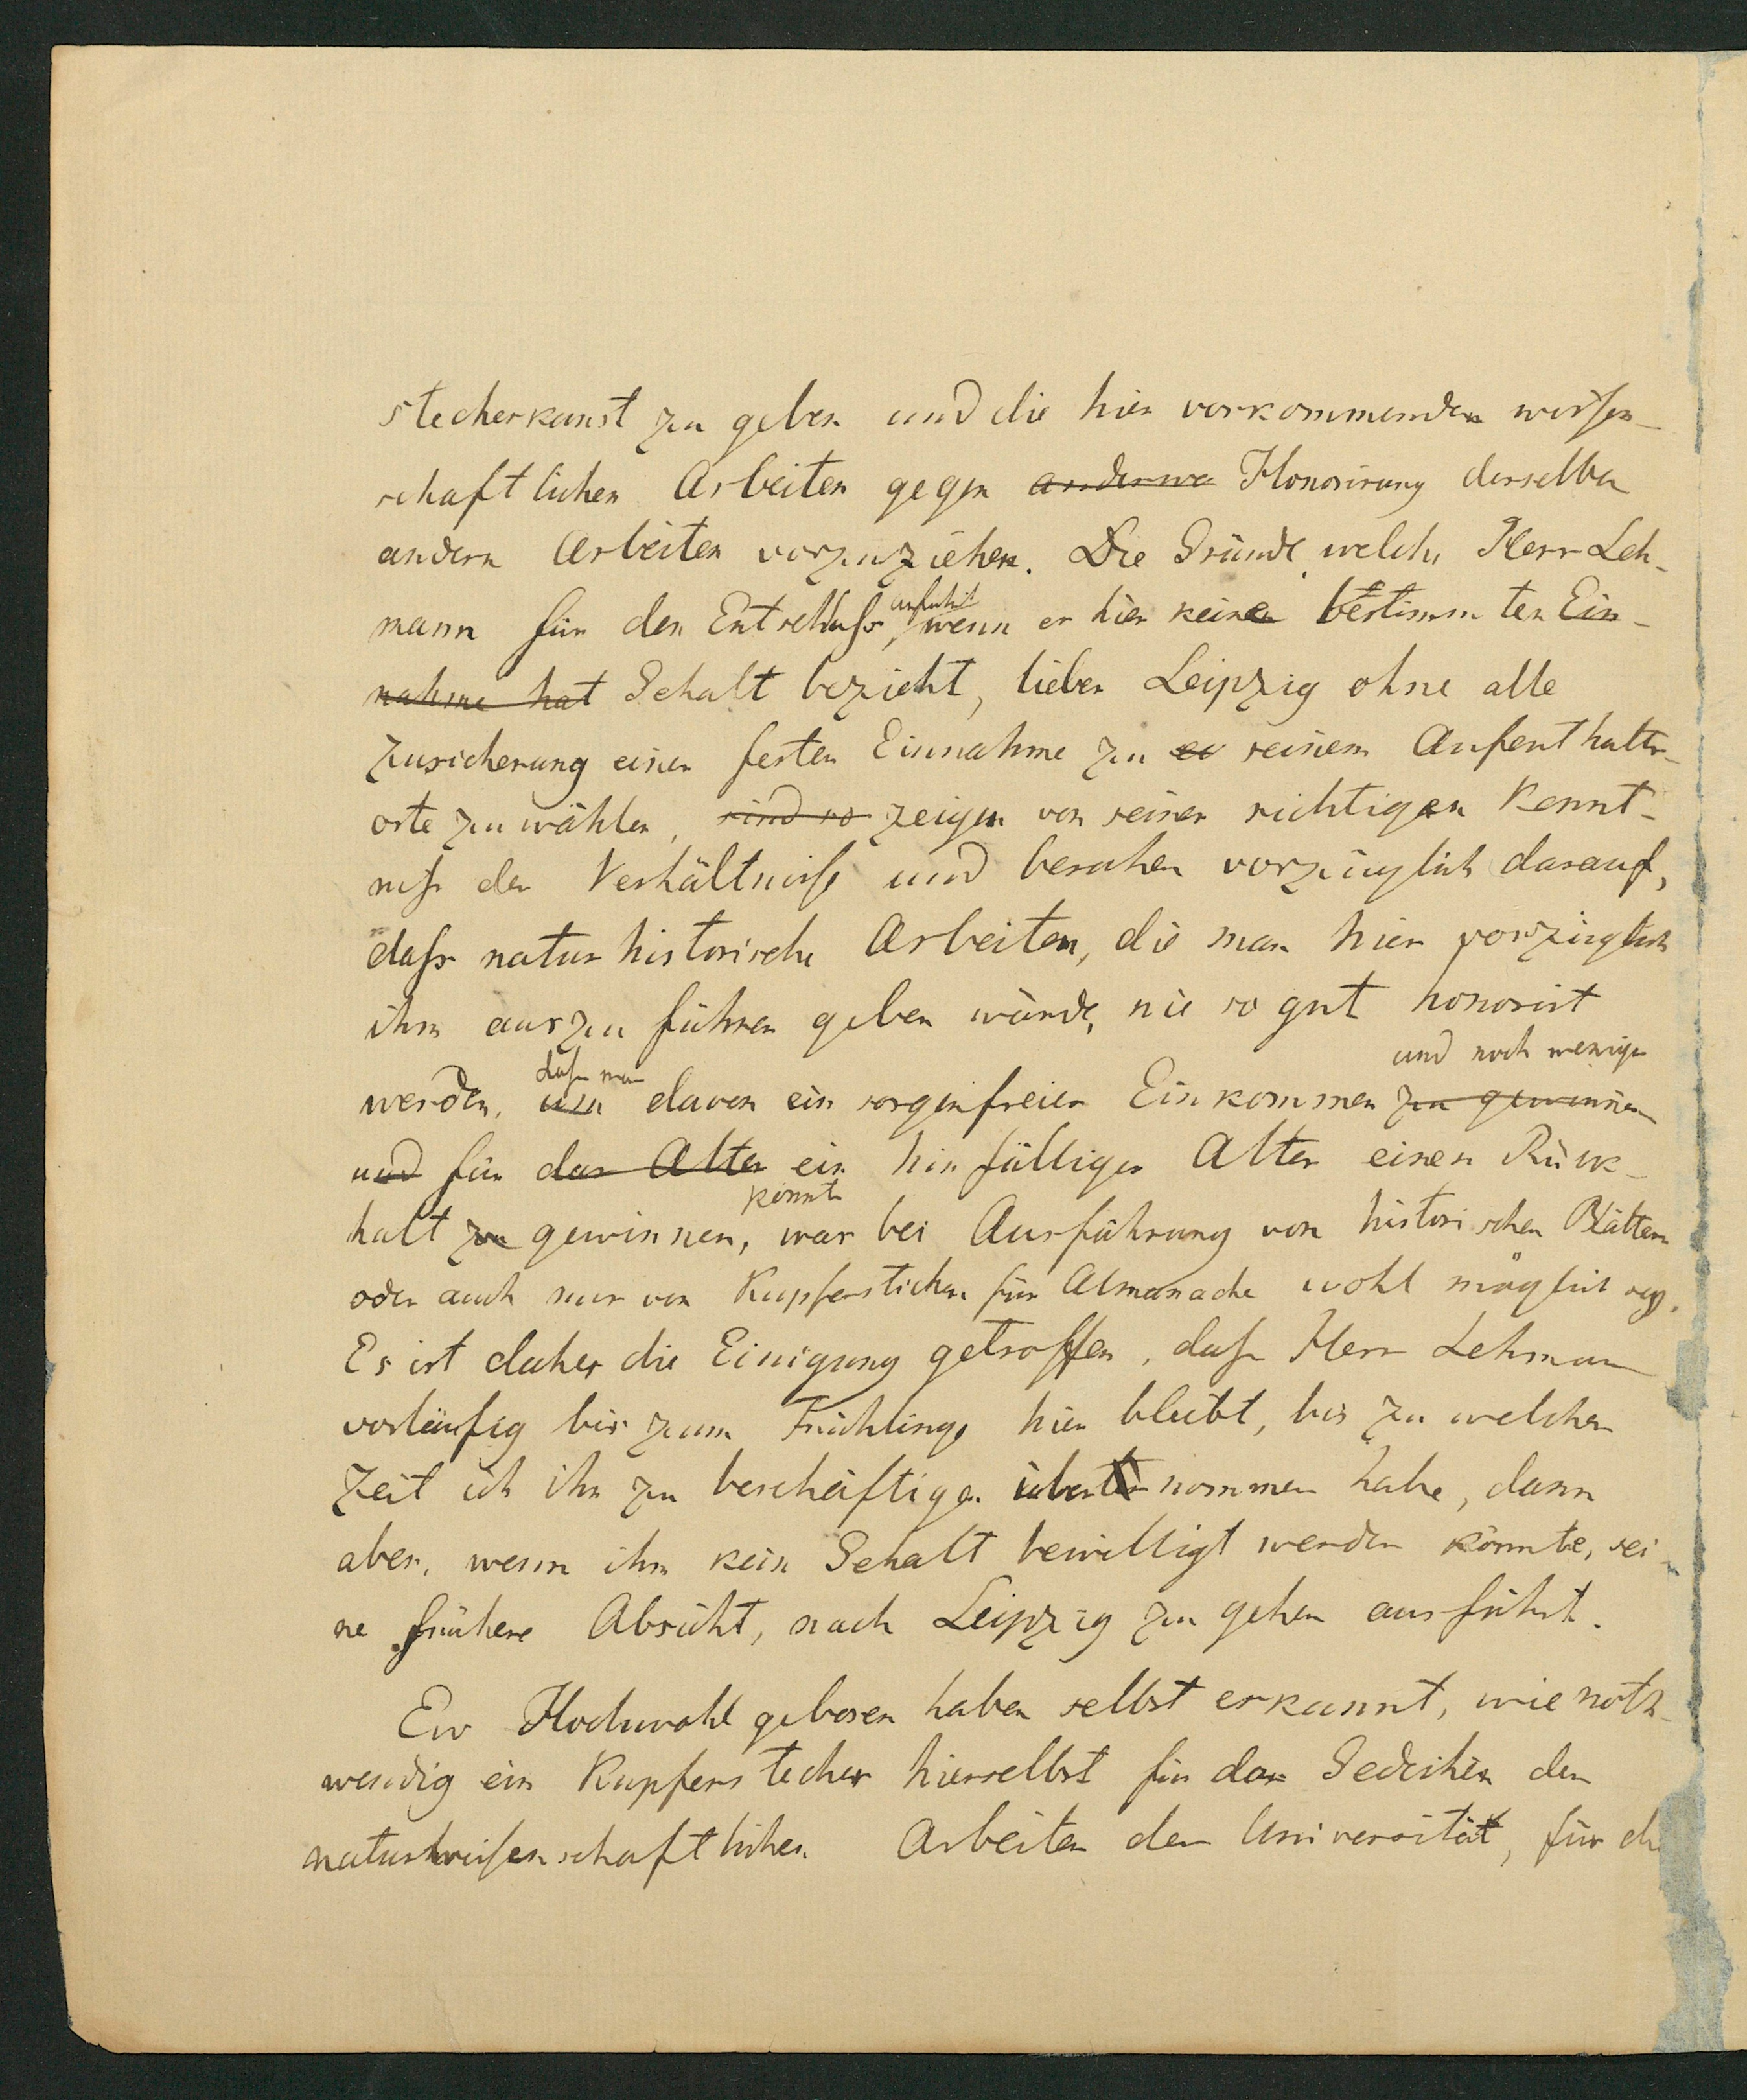 stecherkunst zu geben und die hier vorkommenden wissen-
schaftlichen Arbeiten gegen anderwe Honorirung derselben
andern Arbeiten vorzuziehen. Die Gründe welche Herr Leh-
anführt
mann für den Entschluß, wenn er hier keinen bestimmten Ein-
nahme hat Gehalt bezieht, lieber Leipzig ohne alle
Zusicherung einer festen Einnahme zu seinem Aufenthalts-
orte zu wählen, sind so zeigen von seiner richtigen Kennt-
niß der Verhältniße und beruhen vorzüglich darauf,
daß naturhistorische Arbeiten, die man hier vorzüglich
ihm auszuführen geben würde, nie so gut honorirt
daß man und noch weniger
werden, um davon ein sorgenfreies Einkommen zu gewinnen
und für das Alter ein hinfälliges Alter einen Rück-
könnte
halt zu gewinnen, was bei Ausführung von historischen Blättern
oder auch nur von Kupferstichen für Almanache wohl möglich sey.
Es ist daher die Einigung getroffen, daß Herr Lehmann
vorläufig bis zum Frühlinge hier bleibt, bis zu welcher
Zeit ich ihn zu beschäftigen übernommen habe, dann
aber, wenn ihm kein Gehalt bewilligt werden könnte, sei-
ne frühere Absicht, nach Leipzig zu gehen ausführt.
Ew Hochwohlgeboren haben selbst erkannt, wie noth-
wendig ein Kupferstecher hierselbst für das Gedeihen der
naturwißenschaftlichen Arbeiten der Universität, für